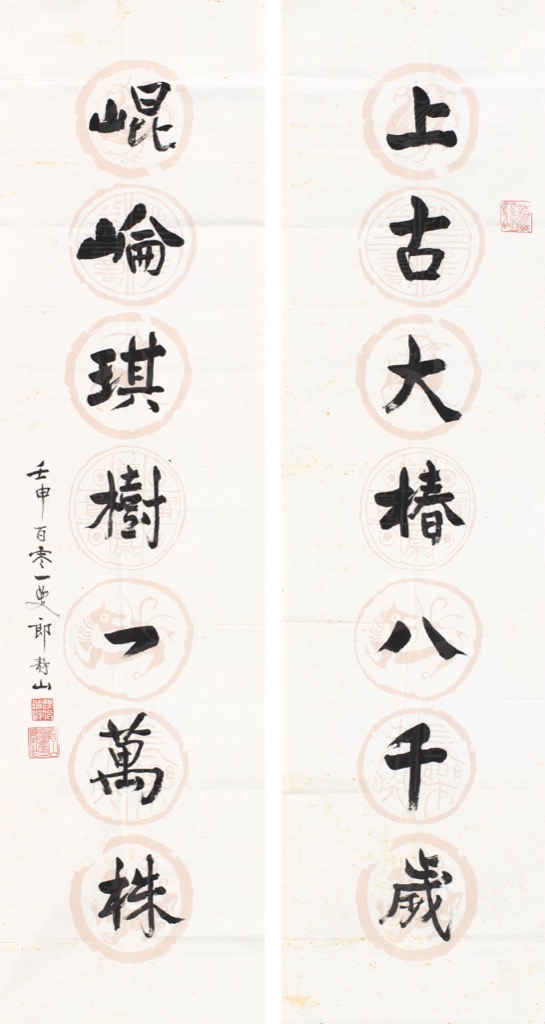 上古大椿八千歲
崐崘琪樹一萬株
壬申百零一叟郎靜山